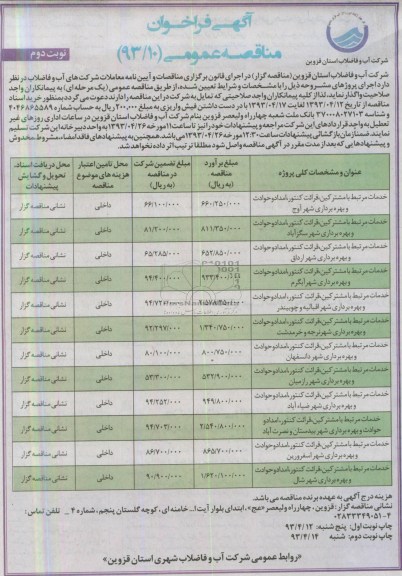 آگهی فراخوان
مناقصه عمومی (۹۳/۱۰)
نوبت دوم
شرکت آب و فاضلاب استان قزوین
شرکت آب و فاضلاب استان قزوین (مناقصه گزار) در اجرای قانون برگزاری مناقصات و آیین نامه معاملات شرکت های آب و فاضلاب در نظر
دارد اجرای پروژه‌های مشروحه ذیل را با مشخصات و شرایط تعیین شده، از طریق مناقصه عمومی (یک مرحله ای) به پیمانکاران واجد
صلاحیت واگذار نماید، لذا از کلیه پیمانکاران واجد صلاحیتی که تمایل به شرکت در این مناقصه را دارند دعوت می گردد بمنظور خرید اسناد
مناقصه از تاریخ ۱۳۹۳/۰۴/۱۲ لغایت ۱۳۹۳/۰۴/۱۷ با در دست داشتن فیش واریزی به مبلغ ۲۰۰,۰۰۰ ریال به حساب شماره
و شناسه بانک ملت شعبه چهارراه ولیعصر قزوین بنام شرکت آب و فاضلاب استان قزوین در ساعات اداری روزهای غیر
تعطیل به واحد قراردادهای این شرکت مراجعه و پیشنهادات خود را تا ساعت ۱۱ مورخه ۱۳۹۳/۰۴/۲۶ به واحد دبیرخانه این شرکت تسلیم
نمایند. ضمنا زمان بازگشائی پیشنهادات ساعت ۱۲:۳۰ مورخه ۱۳۹۳/۰۴/۲۶ می باشد. همچنین به پیشنهادهای فاقد امضاء، مشروط، مخدوش
و پیشنهادهایی که بعد از مدت مقرر در آگهی مناقصه واصل شود مطلقا ترتیب اثر داده نخواهد شد.
عنوان و مشخصات کلی پروژه | مبلغ برآورد مناقصه (به ریال) | مبلغ تضمین شرکت در مناقصه (به ریال) | محل تامین اعتبار هزینه های موضوع مناقصه | محل دریافت اسناد، تحویل و گشایش پیشنهادات
خدمات مرتبط با مشترکین، قرائت کنتور، امداد و حوادث و بهره برداری شهر آوج | ۶۶۰/۲۵۰/۰۰۰ | ۶۶/۱۰۰/۰۰۰ | داخلی | نشانی مناقصه گزار
خدمات مرتبط با مشترکین، قرائت کنتور، امداد و حوادث و بهره برداری شهر سگزآباد | ۸۱۱/۳۵۰/۰۰۰ | ۸۱/۲۰۰/۰۰۰ | داخلی | نشانی مناقصه گزار
خدمات مرتبط با مشترکین، قرائت کنتور، امداد و حوادث و بهره برداری شهر ارداق | ۶۵۲/۸۵۰/۰۰۰ | ۶۵/۲۸۵/۰۰۰ | داخلی | نشانی مناقصه گزار
خدمات مرتبط با مشترکین، قرائت کنتور، امداد و حوادث و بهره برداری شهر آبگرم | ۹۴/۴۰۰/۰۰۰ | داخلی | نشانی مناقصه گزار
خدمات مرتبط با مشترکین، قرائت کنتور، امداد و حوادث و بهره برداری شهر اقبالیه و چوبیندر | داخلی | نشانی مناقصه گزار
خدمات مرتبط با مشترکین، قرائت کنتور، امداد و حوادث و بهره برداری شهر نرجه و خرمدشت | ۱/۳۴۰/۷۵۰/۰۰۰ | ۹۲/۲۹۷/۰۰۰ | داخلی | نشانی مناقصه گزار
خدمات مرتبط با مشترکین، قرائت کنتور، امداد و حوادث و بهره برداری شهر دانسفهان | ۸۰۰/۷۵۰/۰۰۰ | ۸۰/۱۰۰/۰۰۰ | داخلی | نشانی مناقصه گزار
خدمات مرتبط با مشترکین، قرائت کنتور، امداد و حوادث و بهره برداری شهر رازمیان | ۵۳۲/۹۰۰/۰۰۰ | ۵۳/۳۰۰/۰۰۰ | داخلی | نشانی مناقصه گزار
خدمات مرتبط با مشترکین، قرائت کنتور، امداد و حوادث و بهره برداری شهر ضیاء آباد | ۹۴۹/۸۰۰/۰۰۰ | ۹۴/۲۵۲/۰۰۰ | داخلی | نشانی مناقصه گزار
خدمات مرتبط با مشترکین، قرائت کنتور، امداد و حوادث و بهره برداری شهر بیدستان و نصرت آباد | ۲/۵۴۰/۸۰۰/۰۰۰ | ۹۴/۷۰۳/۰۰۰ | داخلی | نشانی مناقصه گزار
خدمات مرتبط با مشترکین، قرائت کنتور، امداد و حوادث و بهره برداری شهر اسفرورین | ۸۶۵/۷۰۰/۰۰۰ | ۸۶/۷۰۰/۰۰۰ | داخلی | نشانی مناقصه گزار
خدمات مرتبط با مشترکین، قرائت کنتور، امداد و حوادث و بهره برداری شهر شال | ۱/۶۲۰/۱۰۰/۰۰۰ | ۹۰/۹۰۰/۰۰۰ | داخلی | نشانی مناقصه گزار
هزینه درج آگهی به عهده برنده مناقصه می باشد.
نشانی مناقصه گزار: قزوین، چهارراه ولیعصر «عج»، ابتدای بلوار آیت ا... خامنه ای، کوچه گلستان پنجم، شماره ۴ _ تلفن تماس:
۰۲۸۳۳۳۴۹۰۵۱-۲
چاپ نوبت اول: پنج شنبه: ۹۳/۴/۱۲
چاپ نوبت دوم: شنبه ۹۳/۴/۱۴
«روابط عمومی شرکت آب و فاضلاب شهری استان قزوین»